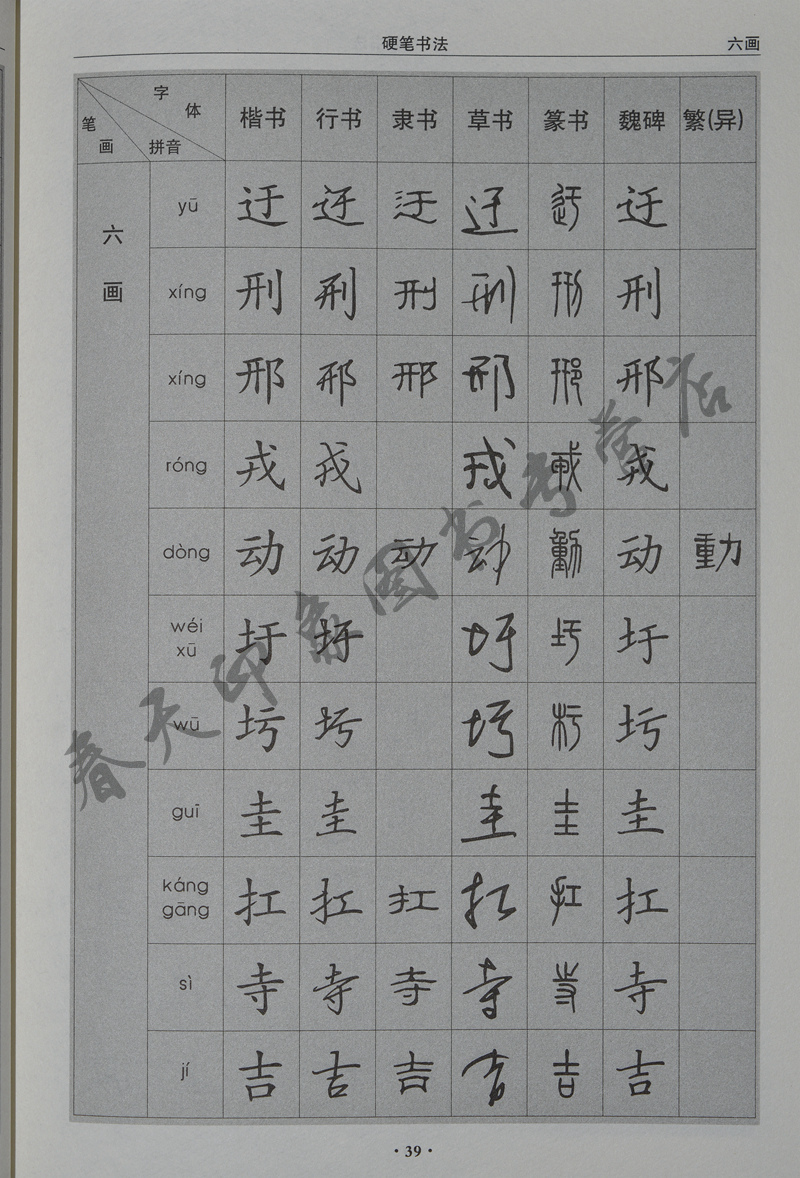 硬笔书法 六画
字体 笔画 拼音 楷书 行书 隶书 草书 篆书 魏碑 繁(异)
六画
yū 迂 迂 迂 迂 迂 迂
xíng 刑 刑 刑 刑 刑 刑
xíng 邢 邢 邢 邢 邢 邢
róng 戎 戎 戎 戎 戎
dòng 动 动 动 动 動 动 動
wéi xū 圩 圩 圩 圩 圩
wū 圬 圬 圬 杇 圬
guī 圭 圭 圭 圭 圭
káng gāng 扛 扛 扛 扛 扛 扛
sì 寺 寺 寺 寺 寺 寺
jí 吉 吉 吉 吉 吉 吉
春天印象图书专营店
·39·